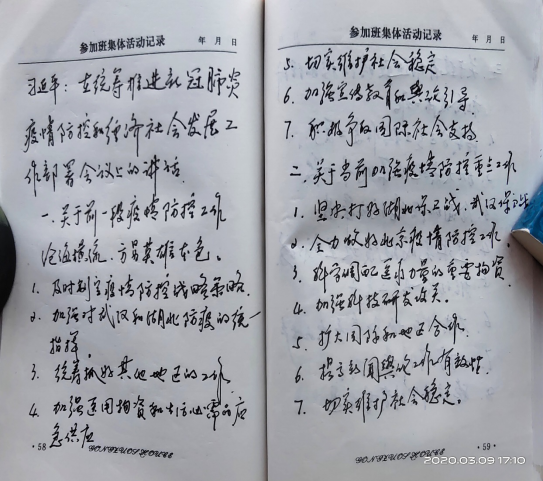 参加班集体活动记录 年 月 日
习近平：在统筹推进新冠肺炎
疫情防控和经济社会发展工
作部署会议上的讲话
一、关于前一段疫情防控工作
沧海横流，方显英雄本色。
1. 及时制定疫情防控战略策略.
2. 加强对武汉和湖北防疫的统一
指挥.
3. 统筹抓好其他地区的工作
4. 加强医用物资和生活必需品应
急供应
·58
参加班集体活动记录 年 月 日
5. 切实维护社会稳定
6. 加强宣传教育和舆论引导
7. 积极争取国际社会支持
二、关于当前加强疫情防控重点工作
1. 坚决打好湖北保卫战、武汉保卫战
2. 全力做好北京疫情防控工作.
3. 科学调配医疗力量和重要物资
4. 加强科技研发攻关.
5. 扩大国际和地区合作
6. 提高新闻舆论工作有效性.
7. 切实维护社会稳定。
·59·
2020.03.09 17:10